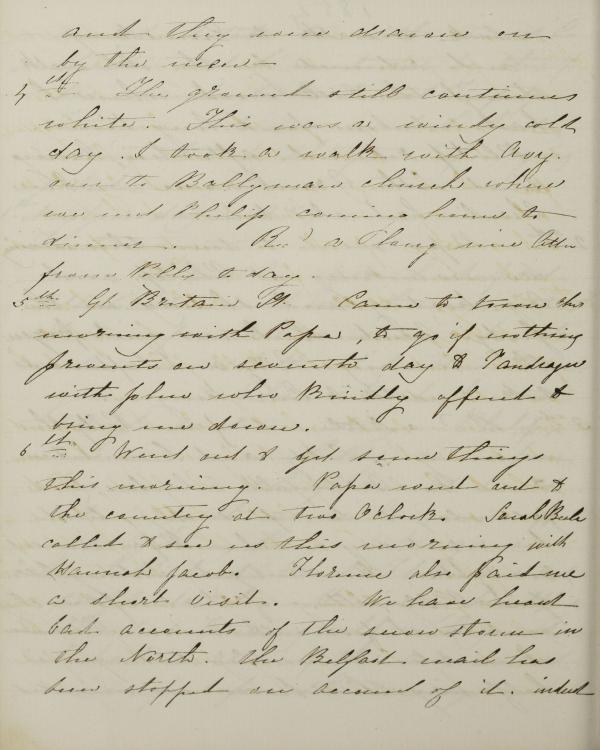 and they were drawn on
by the men
4th The ground still continues
white. This was a windy cold
day. I took a walk with Avy.
over to Ballyman church where
we met Philip coming home to
dinner. Recd a long nice letter
from Polly to day.
5th Gt Britain St. Came to town this
morning with Papa, to go if nothing
prevents on seventh day to Tandragee
with John who kindly offered to
bring me down.
6th Went out & got some things
this morning. Papa went out to
the country at two O'clock. Sarah
called to see us this morning with
Hannah Jacob. Florence also paid me
a short visit. We have heard
bad accounts of the snow storm in
the North. The Belfast mail has
been stopped on account of it. indeed